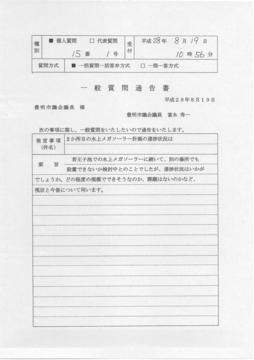 種別
■ 個人質問 □ 代表質問
15 番 1 号
受付
平成 28年 8月 19日
10 時 56 分
質問方式
■ 一括質問一括答弁方式 □ 一問一答方式
一 般 質 問 通 告 書
平成28年8月19日
豊明市議会議長 様
豊明市議会議員 富永 秀一
次の事項に関し、一般質問をいたしたいので通告をいたします。
発言事項
(件名)
2か所目の水上メガソーラー計画の進捗状況は
要 旨
若王子池での水上メガソーラーに続いて、別の場所でも
設置できないか検討中とのことでしたが、進捗状況はいかが
でしょうか。どの程度の規模でできそうなのか、課題はないのかなど、
現状と今後について伺います。